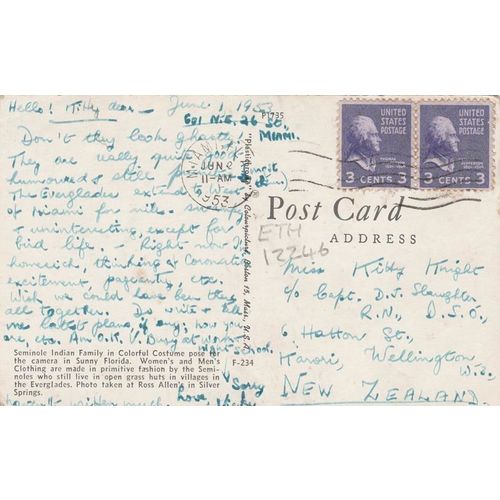 Hello! Kitty dear — June 1, 1953
601 N.E. 26 St.,
MIAMI.
Don't they look ghastly!
They are really quite
humoured & still
The Everglades extend to West
of Miami for miles. swampy
& uninteresting, except for
bird life. - Right now I'm
homesick, thinking of Coronation
excitement, pageantry, etc.
Wish we could have been there
all together. Do write & tell
me latest plans, if any; how you
are, etc. Am O.K. V. Busy at work
Sorry
haven't written much. Love
Seminole Indian Family in Colorful Costume pose for
the camera in Sunny Florida. Women's and Men's
Clothing are made in primitive fashion by the Semi-
noles who still live in open grass huts in villages in
the Everglades. Photo taken at Ross Allen's in Silver
Springs.
F-234
P1735
"Plastichrome" by Colourpicture, Boston 15, Mass., U.S.A.
MIAMI
JUN 2
11-AM
1953
UNITED
STATES
POSTAGE
THOMAS JEFFERSON
3 CENTS 3
UNITED
STATES
POSTAGE
THOMAS JEFFERSON
3 CENTS 3
Post Card
ADDRESS
ETH
12246
Miss Kitty Knight
c/o Capt. D.J. Slaughter
R.N., D.S.O.,
6 Hatton St.,
Karori, Wellington
W.3.,
NEW ZEALAND.